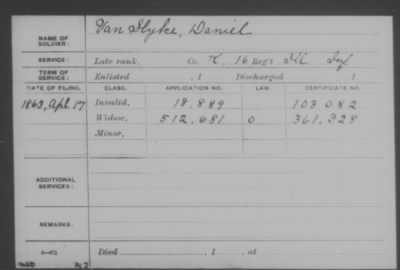 NAME OF SOLDIER: Van Slyke, Daniel
SERVICE: Late rank, Co. K, 16 Reg't Ill Inf
TERM OF SERVICE: Enlisted , 1 Discharged , 1
DATE OF FILING. CLASS. APPLICATION NO. LAW. CERTIFICATE NO.
1863, Apl. 17 Invalid, 18.889 103.082
Widow, 512.681 0 361.328
Minor,
ADDITIONAL SERVICES:
REMARKS:
Died , 1 , at